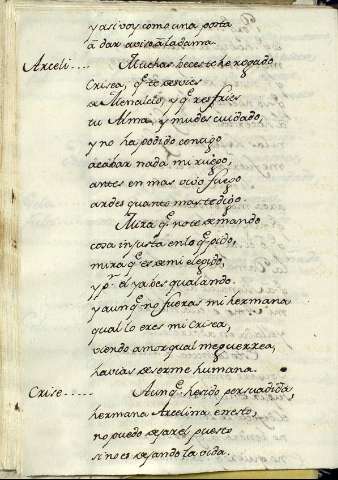 y assi voy como una posta
a dar aviso a la dama.
Arceli.... Muchas veces te he rogado
Crisea, q̃ te desvies
de Menalcio, y q̃ resfries
tu Alma, y mudes cuidado,
y no ha podido contigo
acabar nada mi ruego,
antes en mas vivo fuego
ardes quanto mas te digo.
Mira q̃ no te demando
cosa injusta en lo q̃ pido,
mira q̃ es de mi elegido,
y p. el va des qualando.
y aunq̃ no fueras mi hermana
qual lo eres mi Crisea,
viendo amor qual me guerrea,
havias de serme humana.
Crise..... Aunq̃ he sido persuadida,
hermana Arcelina en esto,
no puedo dexar el puesto
si no es dexando la vida.